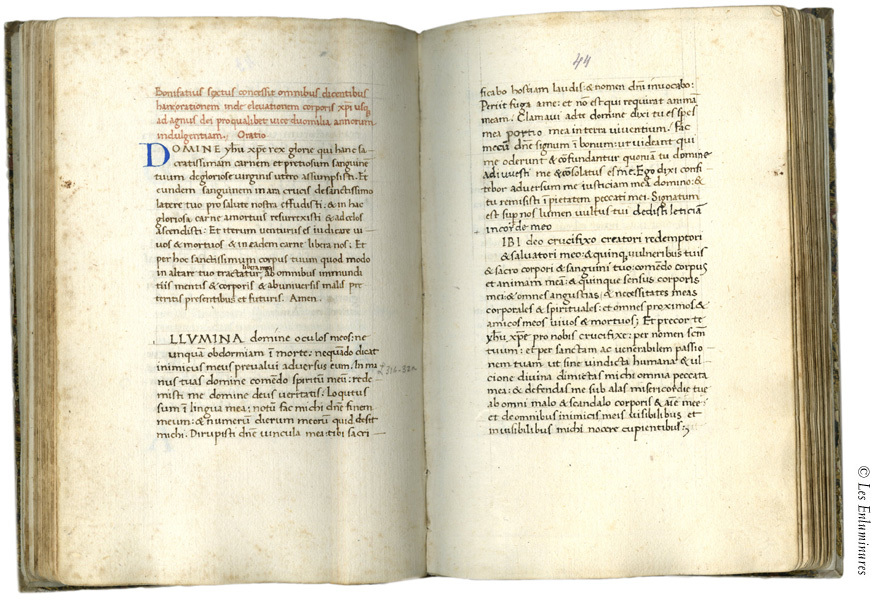 Bonifatius sextus concessit omnibus dicentibus
hanc orationem inde elevationem corporis xpi usq
ad agnus dei pro qualibet vice duo milia annorum
indulgentiam. Oratio
DOMINE yhu xpe rex glorie qui hanc sa
cratissimam carnem et pretiosum sanguine
tuum de gloriose virginis utero assumpsisti: Et
eundem sanguinem in ara crucis de sanctissimo
latere tuo pro salute nostra effudisti: & in hac
gloriosa carne a mortuis resurrexisti & ad celos
ascendisti: Et iterum venturus es iudicare vi
vos & mortuos & in eadem carne libera nos: Et
per hoc sanctissimum corpus tuum quod modo
in altare tuo tractatur, libera me ab omnibus inmundi
tiis mentis & corporis & ab universis malis pre
teritis presentibus et futuris. Amen.
LLUMINA domine oculos meos: ne
unquā obdormiam ī morte: nequādo dicat
inimicus meus prevalui adversus eum. In ma
nus tuas domine comēdo spiritū meū: rede
misti me domine deus veritatis. Loqutus
sum ī lingua mea: notū fac michi dne finem
meum: & numerū dierum meorū quid desit
michi. Dirupisti dne vincula mea: tibi sacri
44
ficabo hostiam laudis: & nomen dni invocabo:
Periit fuga a me: et nō est qui requirat animā
meam. Clamavi ad te domine dixi tu es spes
mea portio mea in terra viventium. Fac
mecū dne signum ī bonum: ut videant qui
me oderunt & cōfundantur quoniā tu domine
adiuvesti me & cōsolatus es me. Ego dixi confi
tebor adversum me iusticiam meā domino: &
tu remisisti īpietatem peccati mei. Signatum
est sup nos lumen vultus tui dedisti leticiā
in corde meo
IBI deo crucifixo creatori redemptori
& salvatori meo: & quinq, vulneribus tuis
& sacro corpori & sanguini tuo: comēdo corpus
et animam meā: & quinque sensus corporis
mei: & omnes angustias & necessitates meas
corporales & spirituales: et omnes proximos &
amicos meos vivos & mortuos; Et precor te
yhu xpe pro nobis crucifixe: per nomen scm
tuum: et per sanctam ac venerabilem passio
nem tuam ut sine vindicta humana & ul
cione divina dimictas michi omnia peccata
mea: & defendas me sub alas misericordie tue
ab omni malo & scandalo corporis & aīe mee:
et de omnibus inimicis meis visibilibus et
invisibilibus michi nocere cupientibus;
© Les Enluminures